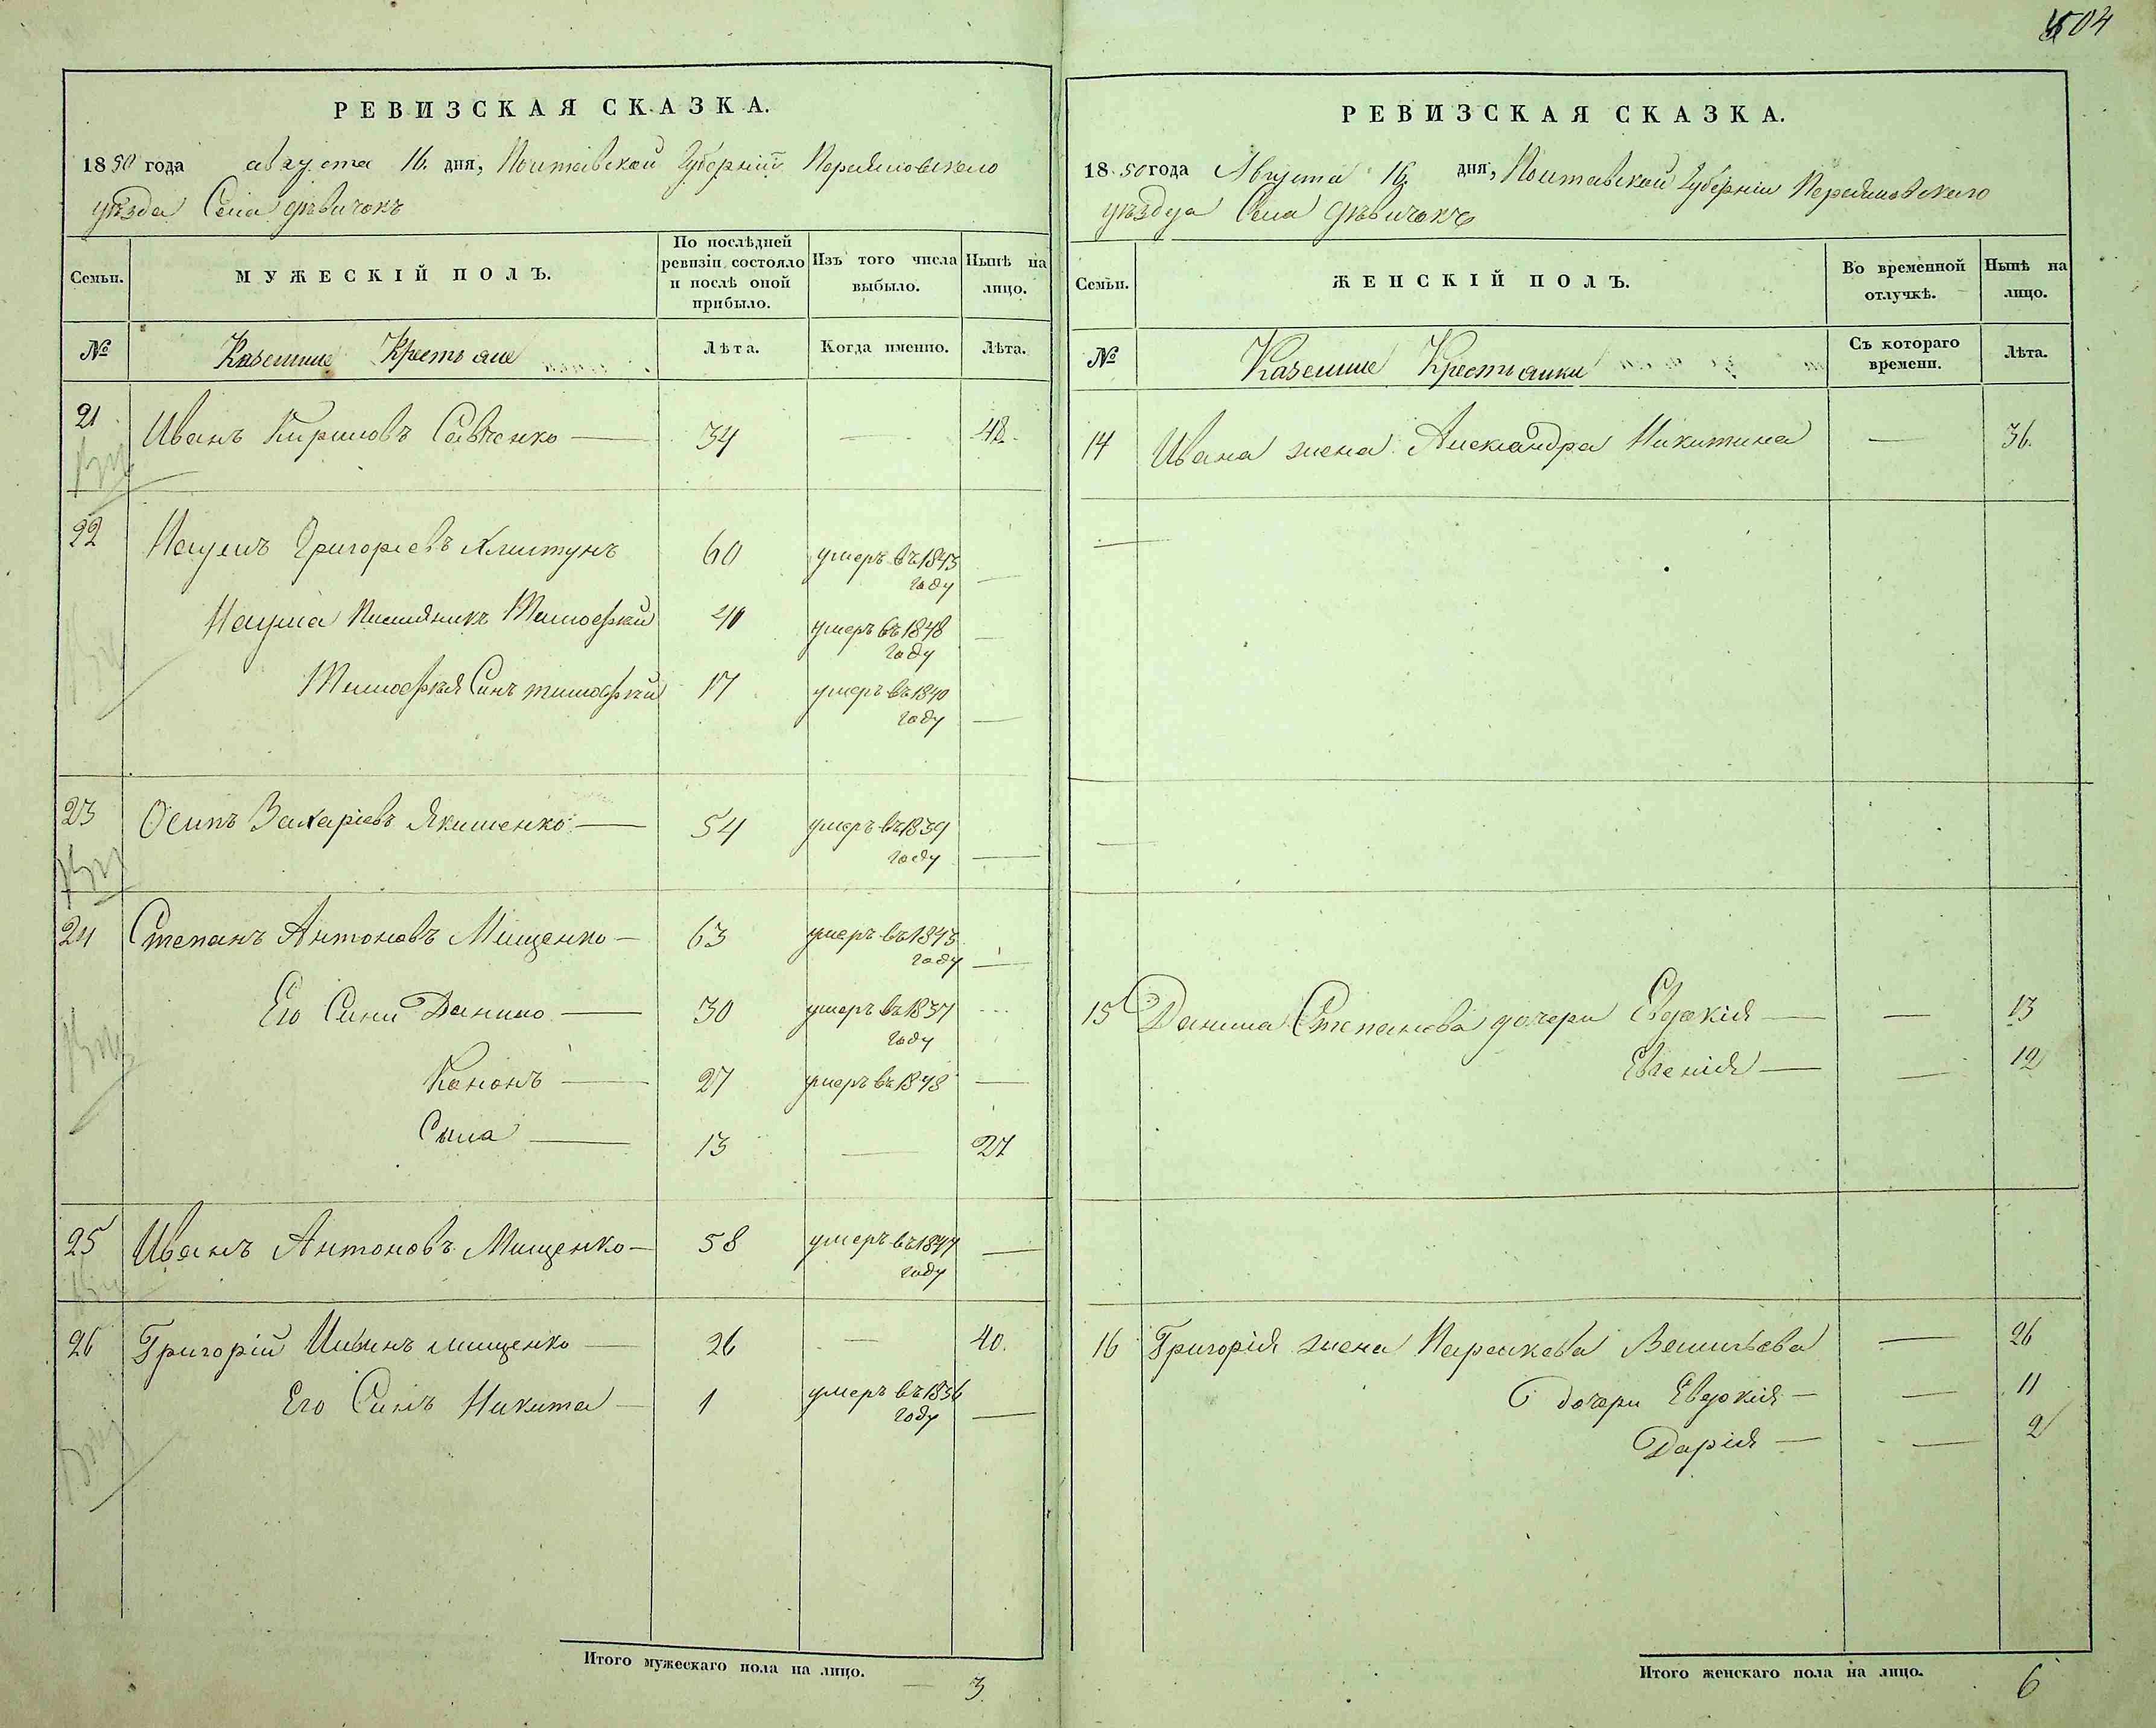 504
РЕВИЗСКАЯ СКАЗКА.
1850 года августа 16. дня, Полтавской Губернии Переяловского
уѣзда Села Дѣвичокъ
Семьи.
МУЖЕСКІЙ ПОЛЪ.
По послѣдней ревизіи состояло и послѣ оной прибыло.
Изъ того числа выбыло.
Нынѣ на лицо.
№
Казенные Крестьяне
Лѣта.
Когда именно.
Лѣта.
21 Иванъ Кириловъ Савченко — 34 — 48.
22 Наумъ Григорьевъ Хлистунъ 60 умеръ въ 1843
году —
Наума Племяникъ Тимофѣй 40 умеръ въ 1848
году —
Тимофѣя Синъ тимофѣй 17 умеръ въ 1840
году —
23 Осипъ Захаріевъ Якименко — 54 умеръ въ 1839
году —
24 Степанъ Антоновъ Мищенко — 63 умеръ въ 1843
году —
Его Сини Данило — 30 умеръ въ 1837
году
Кононъ — 27 умеръ въ 1848 —
Сыла — 13 — 27
25 Иванъ Антоновъ Мищенко — 58 умеръ въ 1847
году —
26 Григорій мищенко — 26 — 40.
Его Синъ Никита — 1 умеръ въ 1836
году —
Итого мужескаго пола на лицо. — 3
РЕВИЗСКАЯ СКАЗКА.
1850 года Августа 16. дня, Полтавской Губерніи Переяловского
уѣзда Села Дѣвичокъ
Семьи.
ЖЕНСКІЙ ПОЛЪ.
Во временной отлучкѣ.
Нынѣ на лицо.
№
Казенные Крестьянки
Съ котораго времени.
Лѣта.
14 Ивана жена Александра Никитина — 36.
15 Данила Степанова дочери Евдокія — — 13
Евгенія — — 12
16 Григорія жена Параскева Васильева — 26
дочери Евдокія — — 11
Дарія — — 2
Итого женскаго пола на лицо. 6